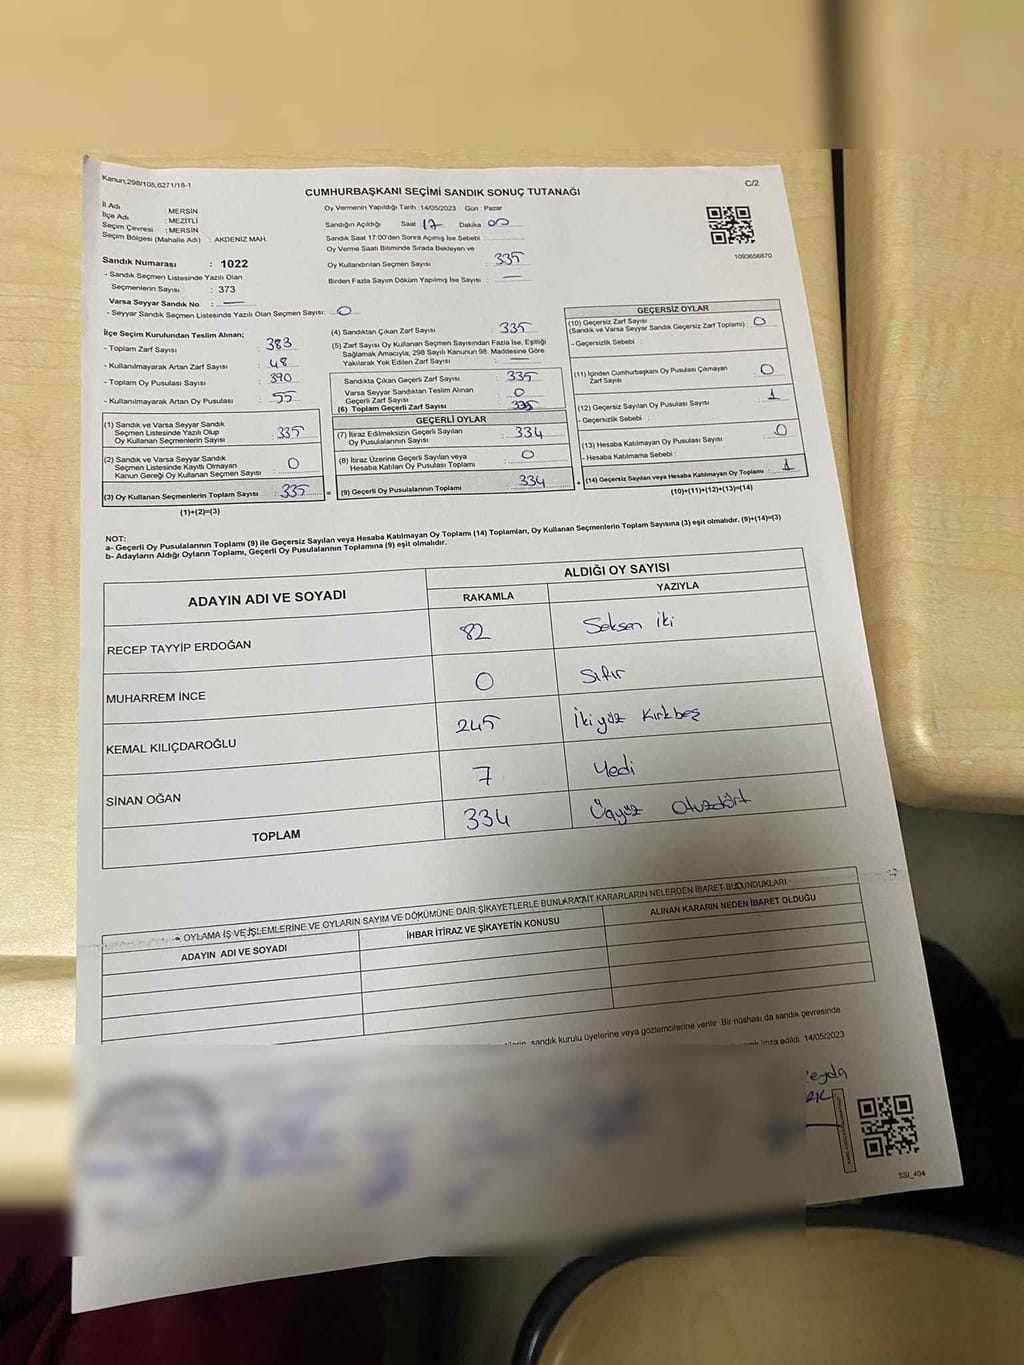 Kanun;298/105,6271/18-1
C/2
CUMHURBAŞKANI SEÇİMİ SANDIK SONUÇ TUTANAĞI
İl Adı : MERSİN
İlçe Adı : MEZİTLİ
Seçim Çevresi : MERSİN
Seçim Bölgesi (Mahalle Adı) : AKDENİZ MAH.
Sandık Numarası : 1022
- Sandık Seçmen Listesinde Yazılı Olan
Seçmenlerin Sayısı : 373
Varsa Seyyar Sandık No : —
- Seyyar Sandık Seçmen Listesinde Yazılı Olan Seçmen Sayısı: 0
Oy Vermenin Yapıldığı Tarih :14/05/2023 Gün : Pazar
Sandığın Açıldığı Saat 17 Dakika 00
Sandık Saat 17:00'den Sonra Açımış İse Sebebi :
Oy Verme Saati Bitiminde Sırada Bekleyen ve
Oy Kullandırılan Seçmen Sayısı : 335
Birden Fazla Sayım Döküm Yapılmış İse Sayısı : —
1093656870
İlçe Seçim Kurulundan Teslim Alınan;
- Toplam Zarf Sayısı : 383
- Kullanılmayarak Artan Zarf Sayısı : 48
- Toplam Oy Pusulası Sayısı : 390
- Kullanılmayarak Artan Oy Pusulası : 55
(1) Sandık ve Varsa Seyyar Sandık
Seçmen Listesinde Yazılı Olup
Oy Kullanan Seçmenlerin Sayısı : 335
(2) Sandık ve Varsa Seyyar Sandık
Seçmen Listesinde Kayıtlı Olmayan
Kanun Gereği Oy Kullanan Seçmen Sayısı : 0
(3) Oy Kullanan Seçmenlerin Toplam Sayısı : 335
(1)+(2)=(3)
(4) Sandıktan Çıkan Zarf Sayısı : 335
(5) Zarf Sayısı Oy Kullanan Seçmen Sayısından Fazla İse, Eşitliği
Sağlamak Amacıyla; 298 Sayılı Kanunun 98. Maddesine Göre
Yakılarak Yok Edilen Zarf Sayısı : —
Sandıkta Çıkan Geçerli Zarf Sayısı : 335
Varsa Seyyar Sandıktan Teslim Alınan
Geçerli Zarf Sayısı : 0
(6) Toplam Geçerli Zarf Sayısı : 335
GEÇERLİ OYLAR
(7) İtiraz Edilmeksizin Geçerli Sayılan
Oy Pusulalarının Sayısı : 334
(8) İtiraz Üzerine Geçerli Sayılan veya
Hesaba Katılan Oy Pusulası Toplamı : 0
= (9) Geçerli Oy Pusulalarının Toplamı : 334
GEÇERSİZ OYLAR
(10) Geçersiz Zarf Sayısı
(Sandık ve Varsa Seyyar Sandık Geçersiz Zarf Toplamı) : 0
- Geçersizlik Sebebi :
(11) İçinden Cumhurbaşkanı Oy Pusulası Çıkmayan
Zarf Sayısı : 0
(12) Geçersiz Sayılan Oy Pusulası Sayısı : 1
- Geçersizlik Sebebi :
(13) Hesaba Katılmayan Oy Pusulası Sayısı : 0
- Hesaba Katılmama Sebebi :
+ (14) Geçersiz Sayılan veya Hesaba Katılmayan Oy Toplamı : 1
(10)+(11)+(12)+(13)=(14)
NOT:
a- Geçerli Oy Pusulalarının Toplamı (9) ile Geçersiz Sayılan veya Hesaba Katılmayan Oy Toplamı (14) Toplamları, Oy Kullanan Seçmenlerin Toplam Sayısına (3) eşit olmalıdır. (9)+(14)=(3)
b- Adayların Aldığı Oyların Toplamı, Geçerli Oy Pusulalarının Toplamına (9) eşit olmalıdır.
ADAYIN ADI VE SOYADI
ALDIĞI OY SAYISI
RAKAMLA YAZIYLA
RECEP TAYYİP ERDOĞAN 82 Seksen iki
MUHARREM İNCE 0 Sıfır
KEMAL KILIÇDAROĞLU 245 İkiyüz Kırkbeş
SİNAN OĞAN 7 Yedi
TOPLAM 334 Üçyüz Otuzdört
OYLAMA İŞ VE İŞLEMLERİNE VE OYLARIN SAYIM VE DÖKÜMÜNE DAİR ŞİKAYETLERLE BUNLARA AİT KARARLARIN NELERDEN İBARET BULUNDUKLARI
ADAYIN ADI VE SOYADI İHBAR İTİRAZ VE ŞİKAYETİN KONUSU ALINAN KARARIN NEDEN İBARET OLDUĞU
sandık kurulu üyelerine veya gözlemcilerine verilir. Bir nüshası da sandık çevresinde
imza edildi. 14/05/2023
SSI_404